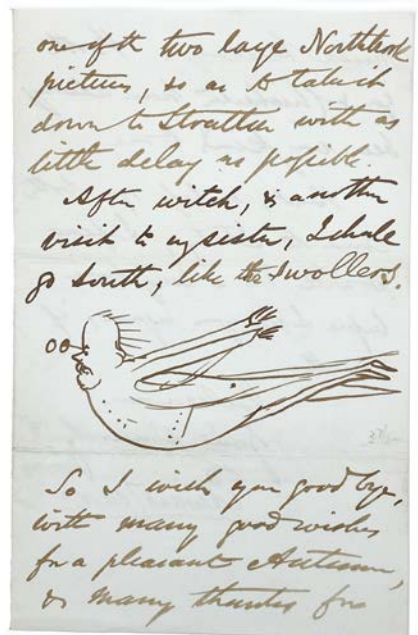 one of the two large Northbrook
pictures, so as to take it
down to Stratton with as
little delay as possible.
After witch, & another
visit to my sister, I shall
go South, like the Swollers.
So I wish you good bye,
with many good wishes
for a pleasant Autumn,
& many thanks for